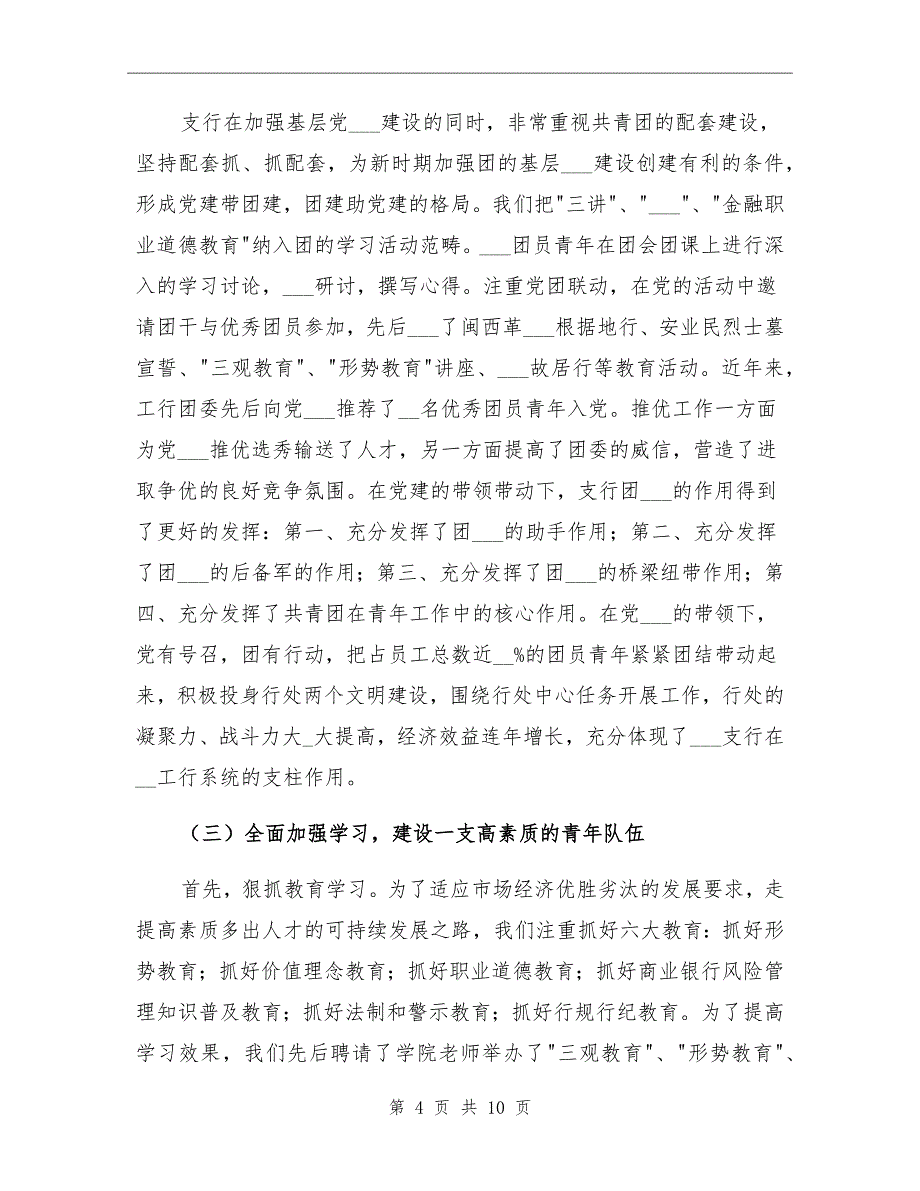 支行在加强基层党___建设的同时，非常重视共青团的配套建设，
坚持配套抓、抓配套，为新时期加强团的基层___建设创建有利的条件，
形成党建带团建，团建助党建的格局。我们把"三讲"、"___"、"金融职
业道德教育"纳入团的学习活动范畴。___团员青年在团会团课上进行深
入的学习讨论，___研讨，撰写心得。注重党团联动，在党的活动中邀
请团干与优秀团员参加，先后___了闽西革___根据地行、安业民烈士墓
宣誓、"三观教育"、"形势教育"讲座、___故居行等教育活动。近年来，
工行团委先后向党___推荐了__名优秀团员青年入党。推优工作一方面
为党___推优选秀输送了人才，另一方面提高了团委的威信，营造了进
取争优的良好竞争氛围。在党建的带领带动下，支行团___的作用得到
了更好的发挥：第一、充分发挥了团___的助手作用；第二、充分发挥
了团___的后备军的作用；第三、充分发挥了团___的桥梁纽带作用；第
四、充分发挥了共青团在青年工作中的核心作用。在党___的带领下，
党有号召，团有行动，把占员工总数近__%的团员青年紧紧团结带动起
来，积极投身行处两个文明建设，围绕行处中心任务开展工作，行处的
凝聚力、战斗力大_大提高，经济效益连年增长，充分体现了___支行在
__工行系统的支柱作用。
（三）全面加强学习，建设一支高素质的青年队伍
首先，狠抓教育学习。为了适应市场经济优胜劣汰的发展要求，走
提高素质多出人才的可持续发展之路，我们注重抓好六大教育：抓好形
势教育；抓好价值理念教育；抓好职业道德教育；抓好商业银行风险管
理知识普及教育；抓好法制和警示教育；抓好行规行纪教育。为了提高
学习效果，我们先后聘请了学院老师举办了"三观教育"、"形势教育"、
第 4 页 共 10 页